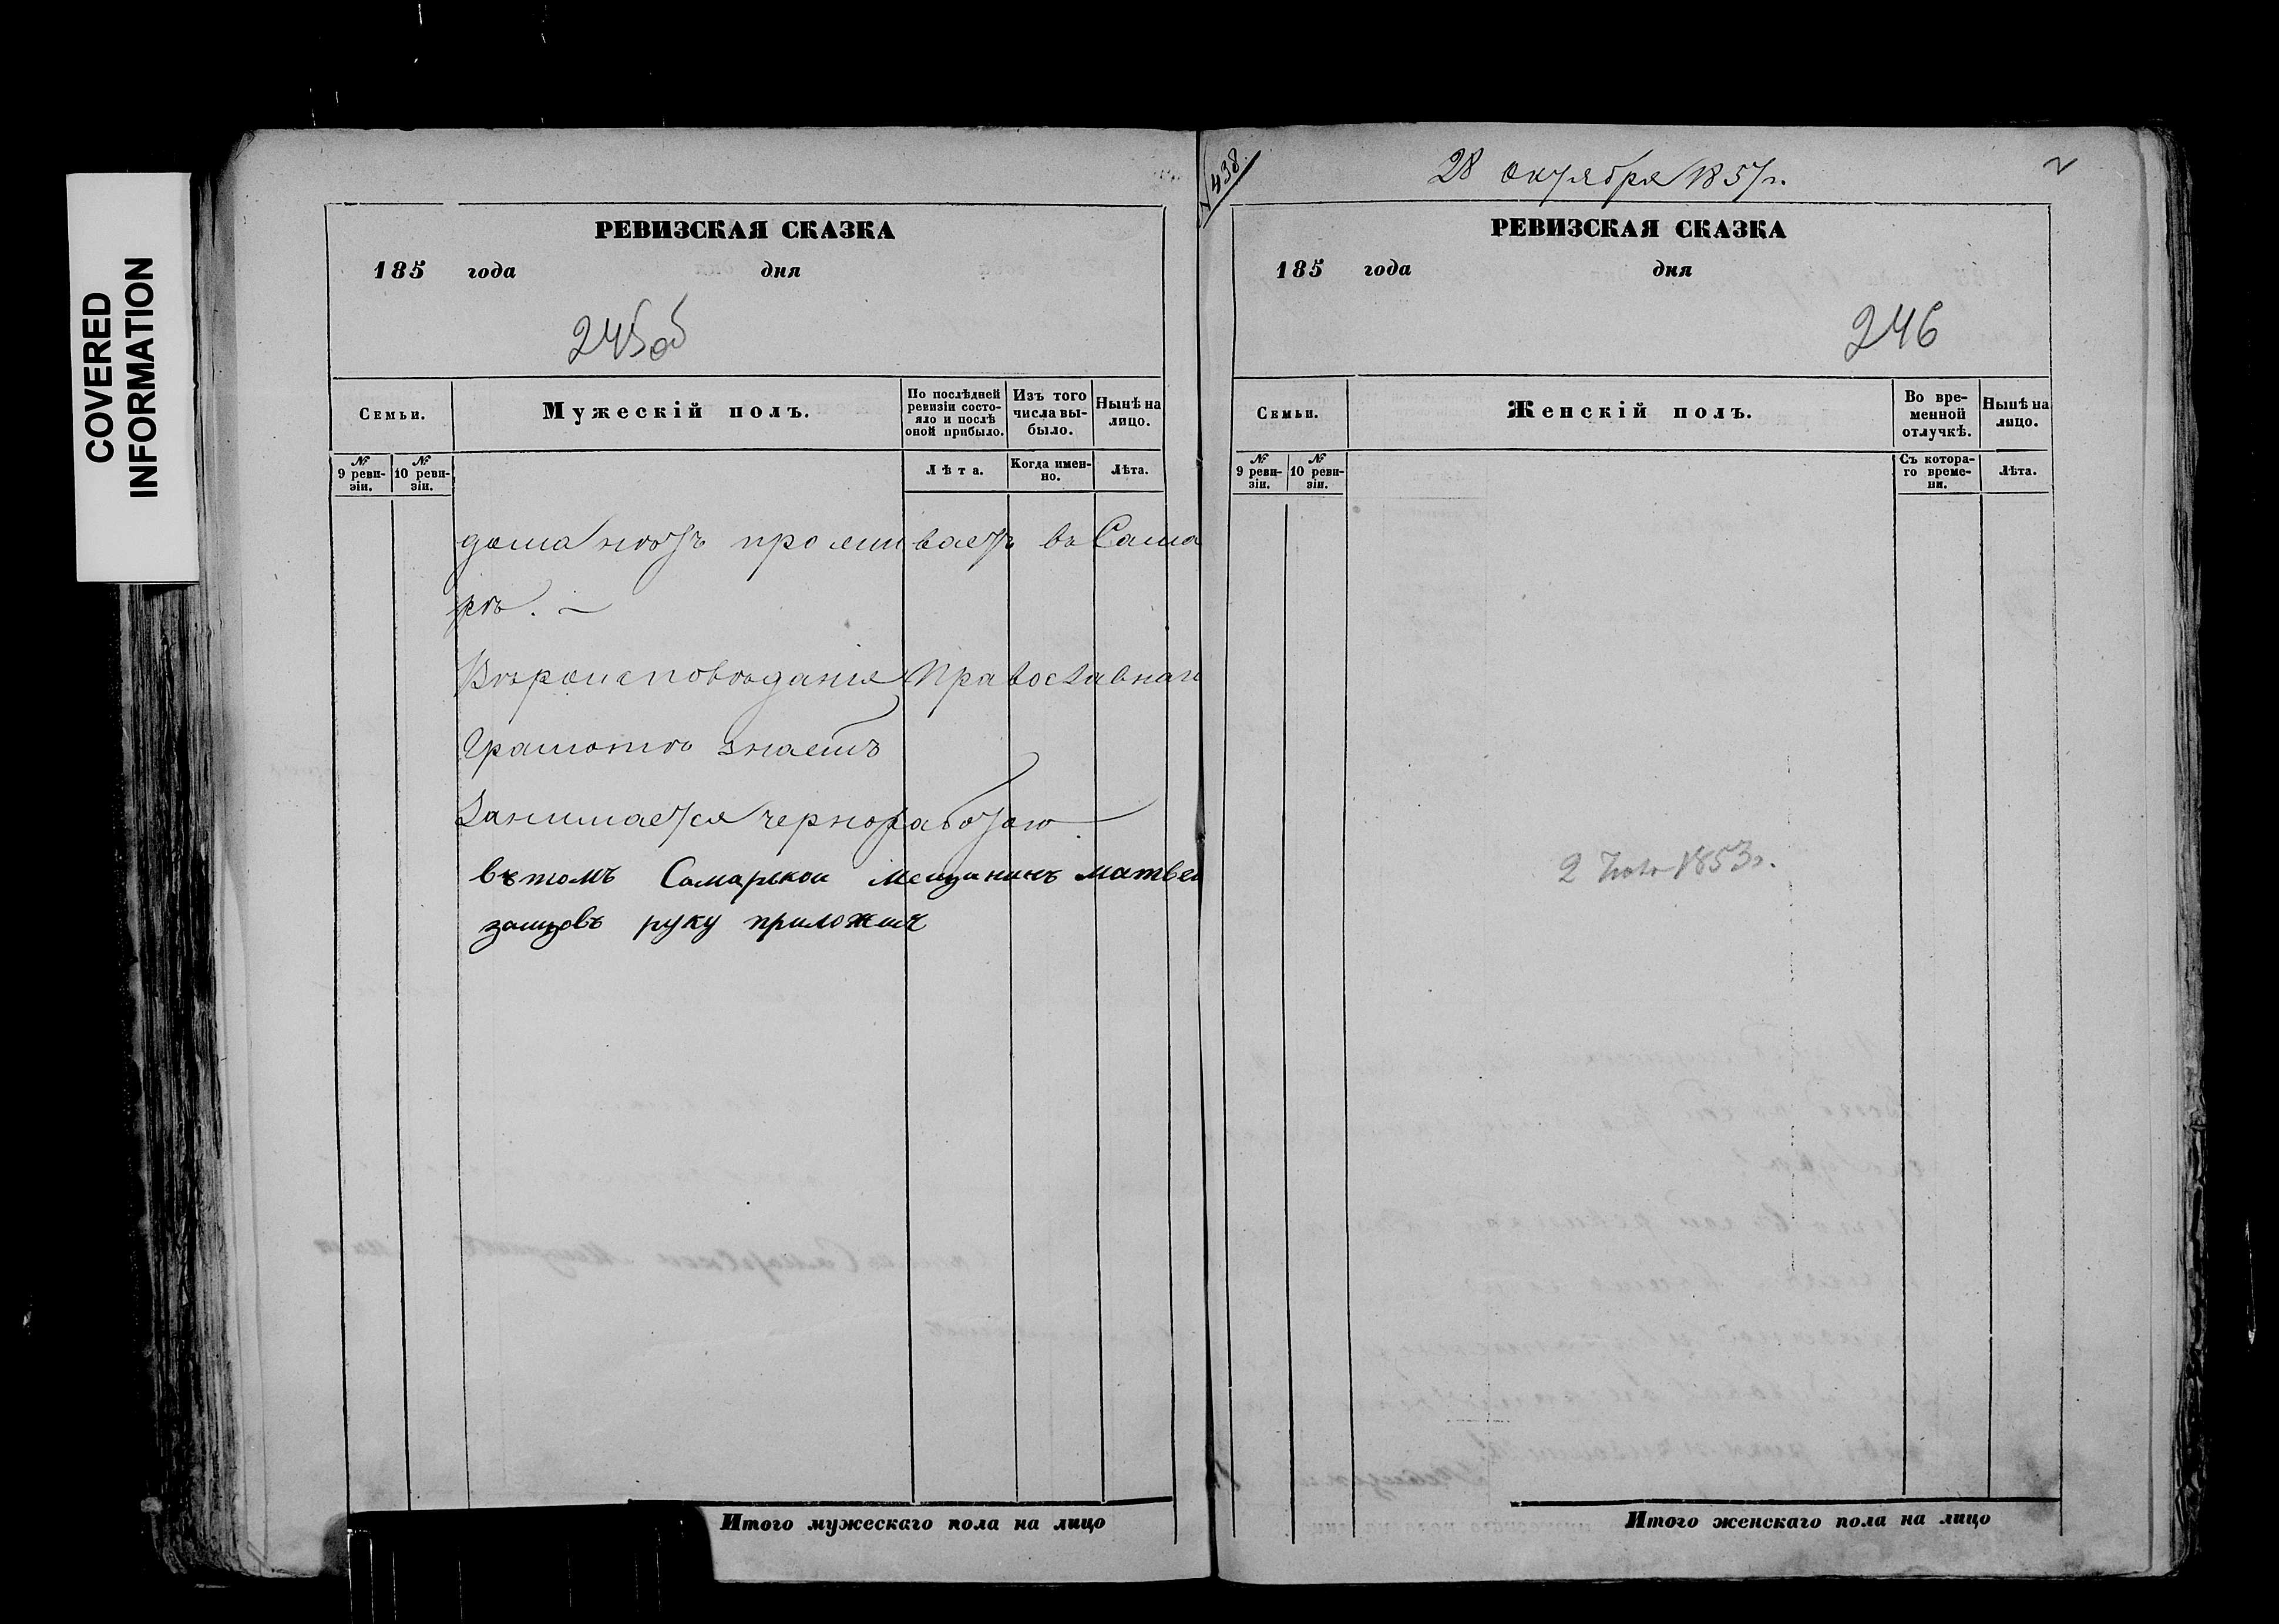 COVERED
INFORMATION
РЕВИЗСКАЯ СКАЗКА
185 года дня
245об
Семьи.
Мужескій полъ.
По послѣдней ревизіи состояло и послѣ оной прибыло.
Изъ того числа выбыло.
Нынѣ на лицо.
№ 9 ревизіи.
№ 10 ревизіи.
Лѣта.
Когда именно.
Лѣта.
дома нѣтъ проживаетъ въ Сама
рѣ. —
Вѣроисповѣданія Православнаго
Грамотѣ знаетъ
Занимается чернорабо­тою
въ томъ Самарской мещининъ матвей
руку приложилъ
Итого мужескаго пола на лицо
438
28 октября 1857 г.
РЕВИЗСКАЯ СКАЗКА
185 года дня
246
Семьи.
Женскій полъ.
Во временной отлучкѣ.
Нынѣ на лицо.
№ 9 ревизіи.
№ 10 ревизіи.
Съ котораго времени.
Лѣта.
2 1853 г.
Итого женскаго пола на лицо